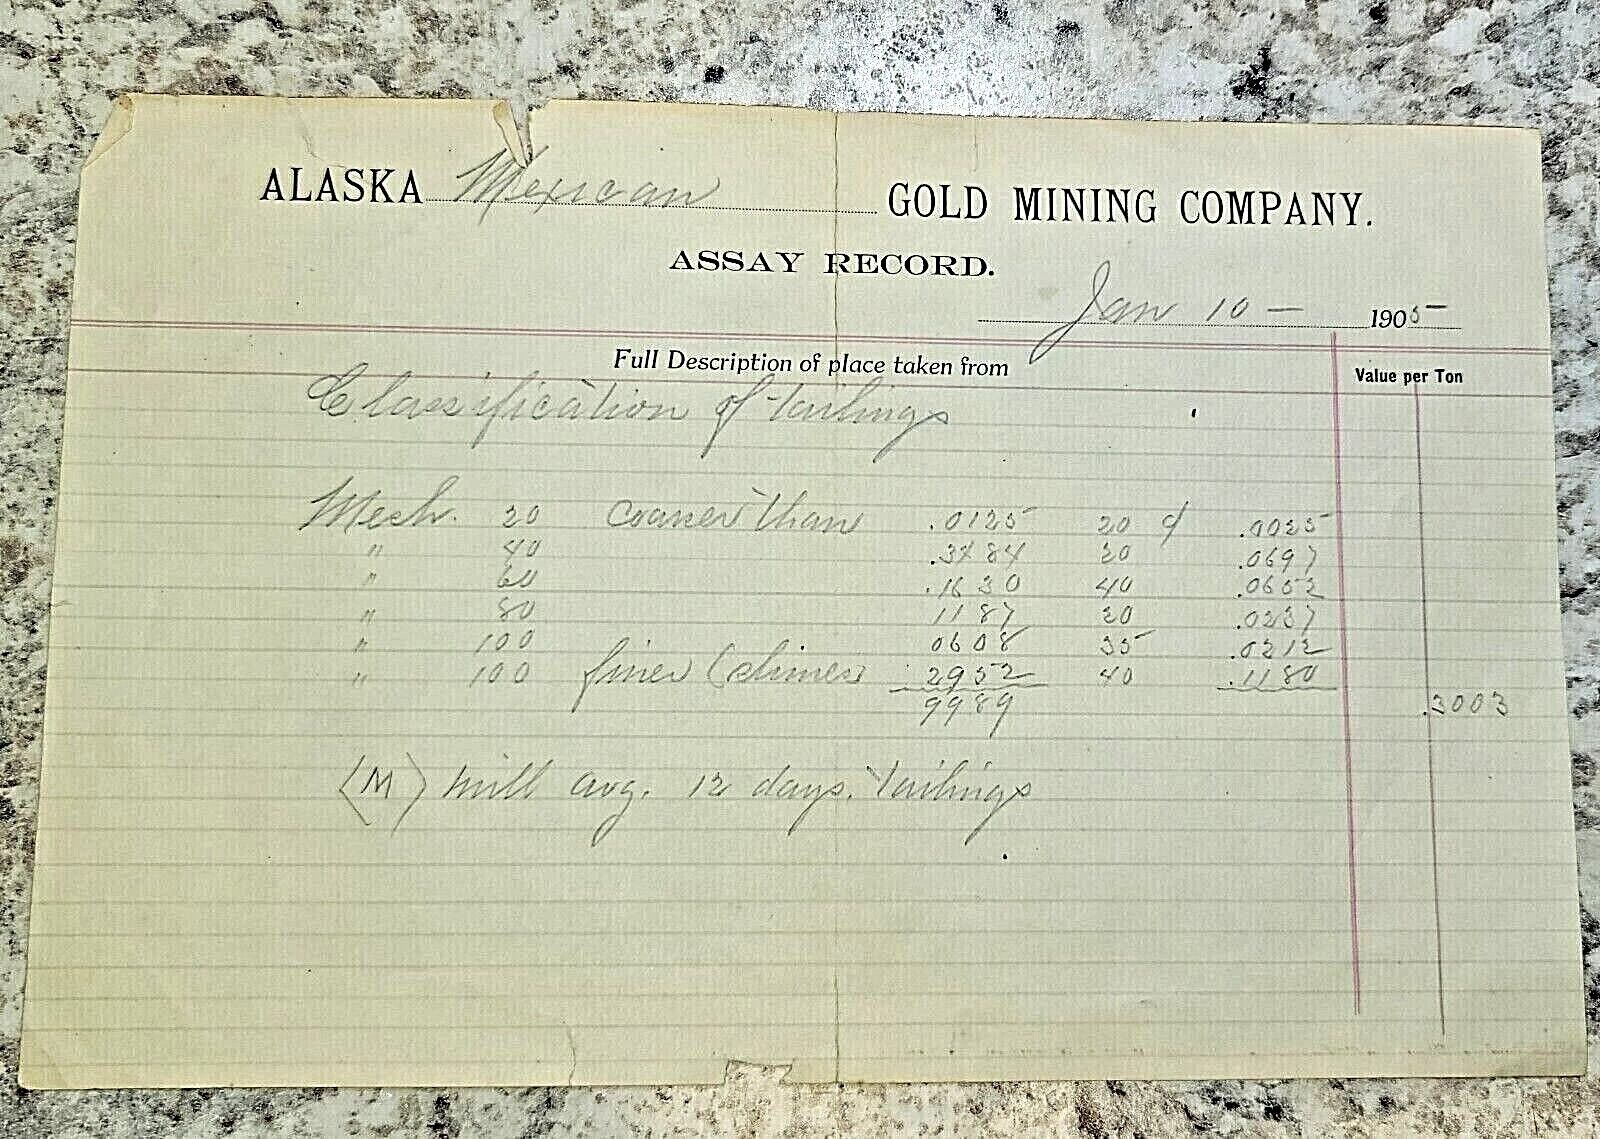 ALASKA Mexican GOLD MINING COMPANY.
ASSAY RECORD.
Jan 10 - 1905
Full Description of place taken from Value per Ton
Classification of tailings
Mesh. 20 coarser than .0125 20 ¢ .0025
" 40 .3484 20 .0697
" 60 .1630 40 .0652
" 80 1187 20 .0237
" 100 0608 35 .0212
" 100 finer (slimes) 2952 40 .1180
9989 .3003
(M) mill avg. 12 days. tailings